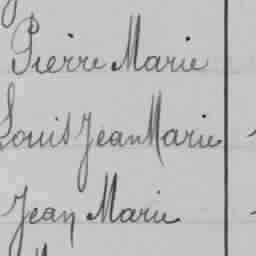 Pierre Marie
Louis Jean Marie
Jean Marie